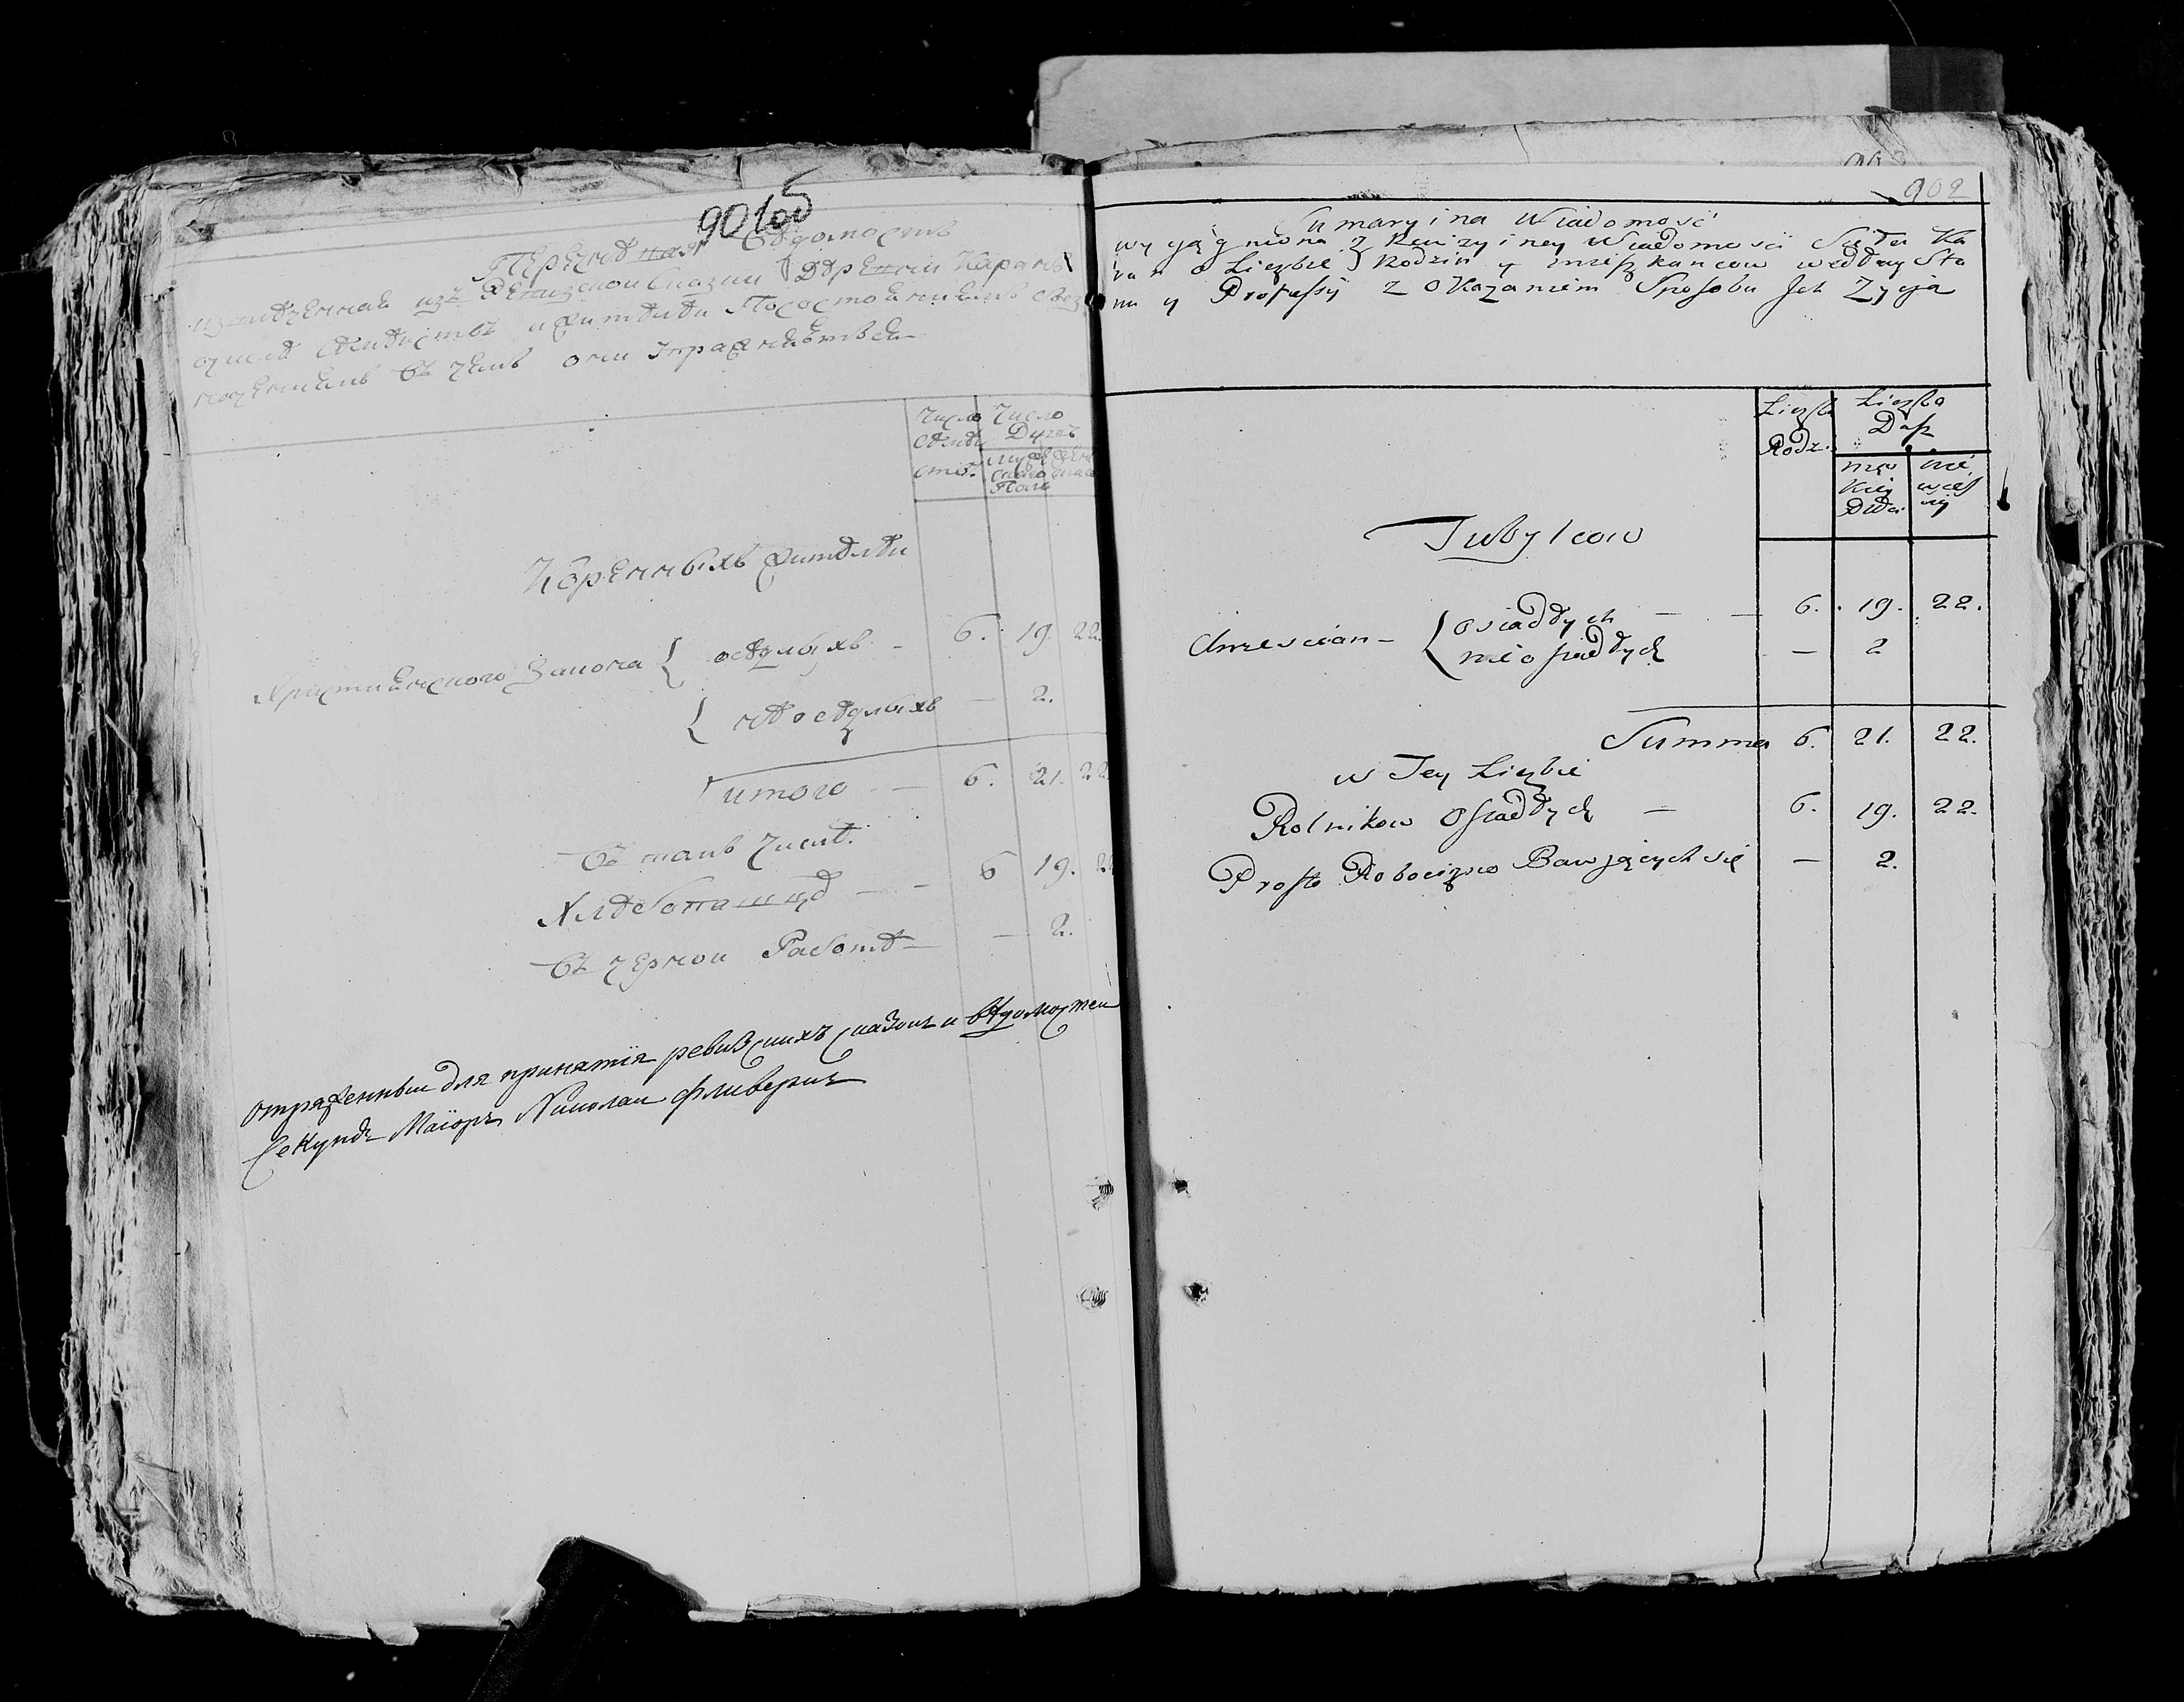 901 об
Перечневая Ведомость
извлеченная изъ Ревизской Сказки Деревни Карань
числе семействъ и жителей По состояниямъ
чениемъ въ чемъ они Упражняются
Число Семей ств:
Число Душъ
Мужескаго Пола
Коренныхъ жителей
Християнского Закона { оседлыхъ - 6. 19. 22.
{ не оседлыхъ - 2.
итого - 6. 21. 22
Въ томъ числе:
Хлебопашце - - 6 19. 22
Въ черной Работе - - 2.
отряженныи для принятия ревизскихъ сказокъ и ведомостеи
Секундъ Маiоръ Николаи Фливеркъ
902
Sumaryina Wiadomość
wyciągniona z Rewizyiney Wiadomosci Sioła Ka
ran o Liczbie Rodzin y mieszkancow według Sta
nu y Professyi z Okazaniem Sposobu Ich Zycia
Liczba Rodz:
Liczba Dusz
męs kiey Płci
nie wies iey
Tubylcow
Chrzescian - { osiadłych - - 6. 19. 22.
nieosiadłych - 2
Summa 6. 21. 22.
w Tey Liczbie
Rolnikow Osiadłych - 6. 19. 22.
Prosto Robocizno Bawjących się - 2.